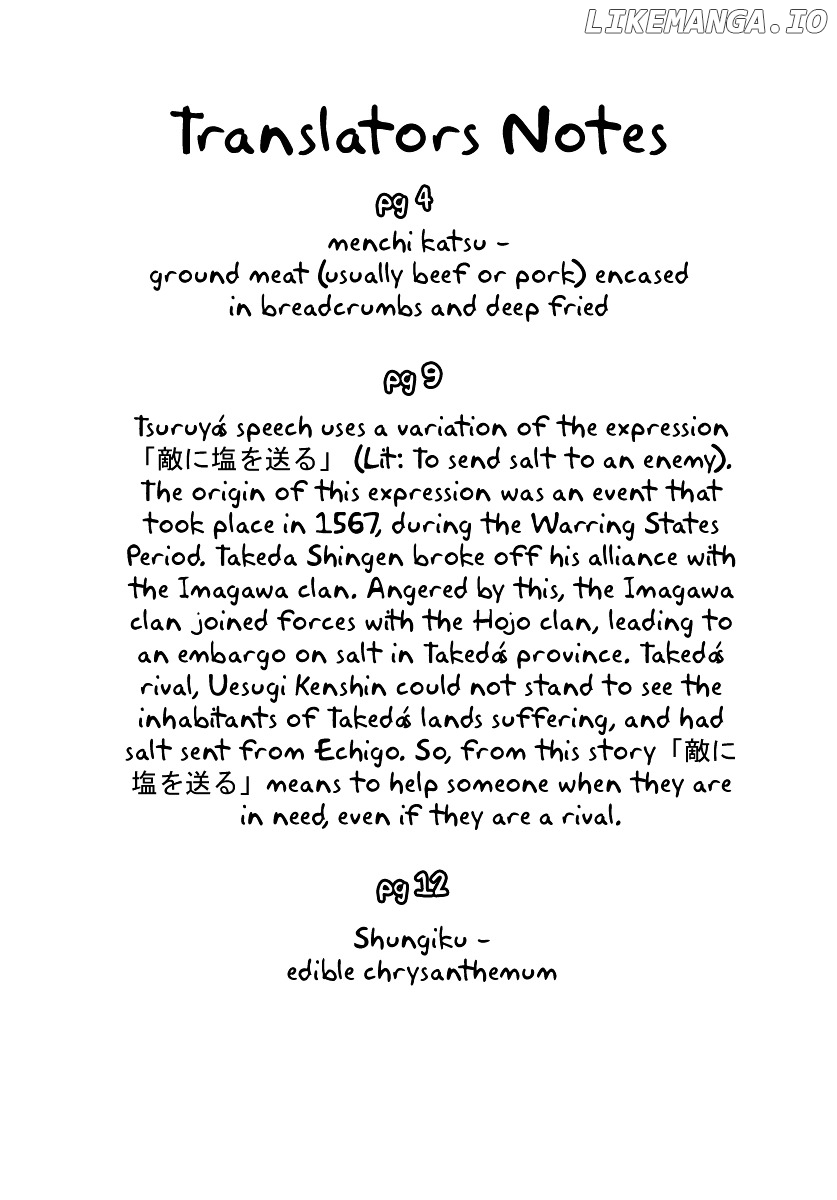 LIKEMANGA.IO
Translators Notes
pg 4
menchi katsu -
ground meat (usually beef or pork) encased
in breadcrumbs and deep fried
pg 9
Tsuruya's speech uses a variation of the expression
「敵に塩を送る」 (Lit: To send salt to an enemy).
The origin of this expression was an event that
took place in 1567, during the Warring States
Period. Takeda Shingen broke off his alliance with
the Imagawa clan. Angered by this, the Imagawa
clan joined forces with the Hojo clan, leading to
an embargo on salt in Takeda's province. Takeda's
rival, Uesugi Kenshin could not stand to see the
inhabitants of Takeda's lands suffering, and had
salt sent from Echigo. So, from this story「敵に
塩を送る」means to help someone when they are
in need, even if they are a rival.
pg 12
Shungiku -
edible chrysanthemum